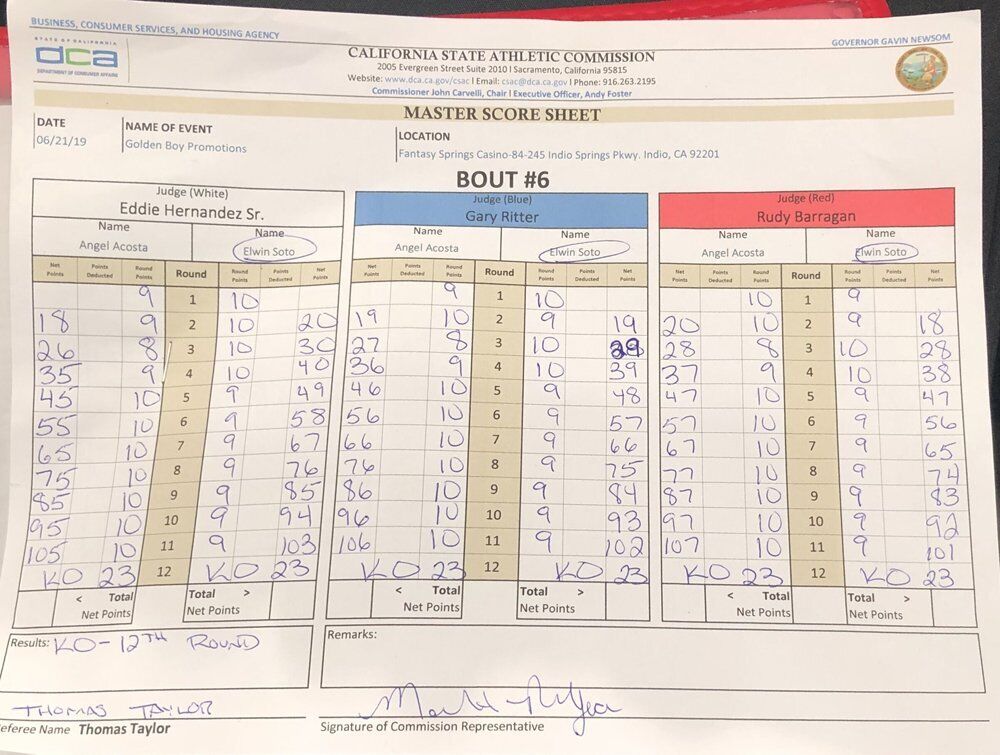 BUSINESS, CONSUMER SERVICES, AND HOUSING AGENCY
GOVERNOR GAVIN NEWSOM
STATE OF CALIFORNIA
dca
DEPARTMENT OF CONSUMER AFFAIRS
CALIFORNIA STATE ATHLETIC COMMISSION
2005 Evergreen Street Suite 2010 I Sacramento, California 95815
Website: www.dca.ca.gov/csac I Email: csac@dca.ca.gov I Phone: 916.263.2195
Commissioner John Carvelli, Chair I Executive Officer, Andy Foster
MASTER SCORE SHEET
DATE NAME OF EVENT LOCATION
06/21/19 Golden Boy Promotions Fantasy Springs Casino-84-245 Indio Springs Pkwy. Indio, CA 92201
BOUT #6
Judge (White) Judge (Blue) Judge (Red)
Eddie Hernandez Sr. Gary Ritter Rudy Barragan
Name Name Name Name Name Name
Angel Acosta Elwin Soto Angel Acosta Elwin Soto Angel Acosta Elwin Soto
Net Points Points Deducted Round Points Round Round Points Points Deducted Net Points Net Points Points Deducted Round Points Round Round Points Points Deducted Net Points Net Points Points Deducted Round Points Round Round Points Points Deducted Net Points
9 1 10 9 1 10 10 1 9
18 9 2 10 20 19 10 2 9 19 20 10 2 9 18
26 8 3 10 30 27 8 3 10 28 8 3 10 28
35 9 4 10 40 36 9 4 10 39 37 9 4 10 38
45 10 5 9 49 46 10 5 9 48 47 10 5 9 47
55 10 6 9 58 56 10 6 9 57 57 10 6 9 56
65 10 7 9 67 66 10 7 9 66 67 10 7 9 65
75 10 8 9 76 76 10 8 9 75 77 10 8 9 74
85 10 9 9 85 86 10 9 9 84 87 10 9 9 83
95 10 10 9 94 96 10 10 9 93 97 10 10 9 92
105 10 11 9 103 106 10 11 9 102 107 10 11 9 101
KO 23 12 KO 23 KO 23 12 KO 23 KO 23 12 KO 23
< Total Total > < Total Total > < Total Total >
Net Points Net Points Net Points Net Points Net Points Net Points
Results: KO-12TH ROUND Remarks:
THOMAS TAYLOR
eferee Name Thomas Taylor Signature of Commission Representative